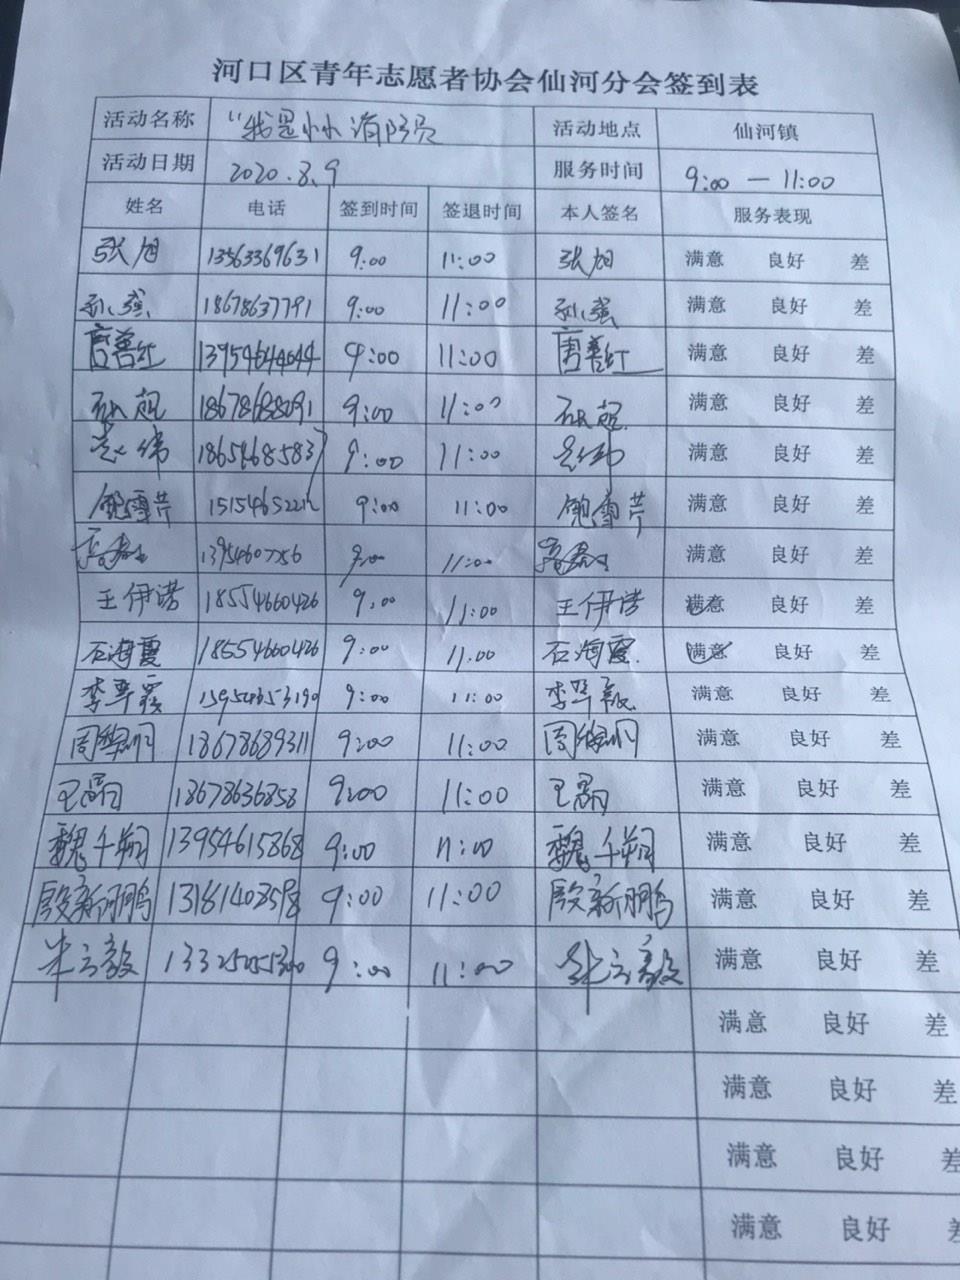 河口区青年志愿者协会仙河分会签到表
活动名称 “我是小小消防员 活动地点 仙河镇
活动日期 2020.8.9 服务时间 9:00 — 11:00
姓名 电话 签到时间 签退时间 本人签名 服务表现
张旭 13563369631 9:00 11:00 张旭 满意 良好 差
孙强 18678637791 9:00 11:00 孙强 满意 良好 差
唐善红 13954644044 9:00 11:00 唐善红 满意 良好 差
18678688091 9:00 11:00 满意 良好 差
9:00 11:00 满意 良好 差
鲍雪芹 9:00 11:00 鲍雪芹 满意 良好 差
9:00 11:00 满意 良好 差
王伊诺 18554660426 9:00 11:00 王伊诺 满意 良好 差
石海霞 18554660426 9:00 11:00 石海霞 满意 良好 差
9:00 11:00 满意 良好 差
18678689311 9:00 11:00 满意 良好 差
18678636858 9:00 11:00 满意 良好 差
魏千翔 13954615868 9:00 11:00 魏千翔 满意 良好 差
殷新鹏 9:00 11:00 殷新鹏 满意 良好 差
9:00 11:00 满意 良好 差
满意 良好 差
满意 良好 差
满意 良好 差
满意 良好 差